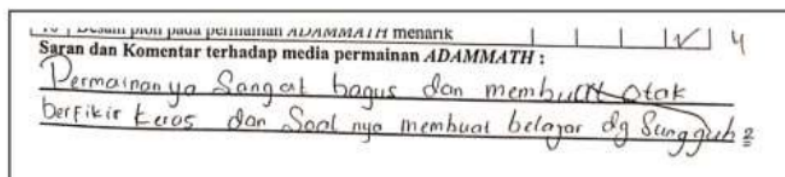 10 Desain pion pada permainan ADAMMATH menarik √ 4
Saran dan Komentar terhadap media permainan ADAMMATH :
Permainan ya Sangat bagus dan membuat otak
berfikir keras dan Soal nya membuat belajar dg Sungguh 2